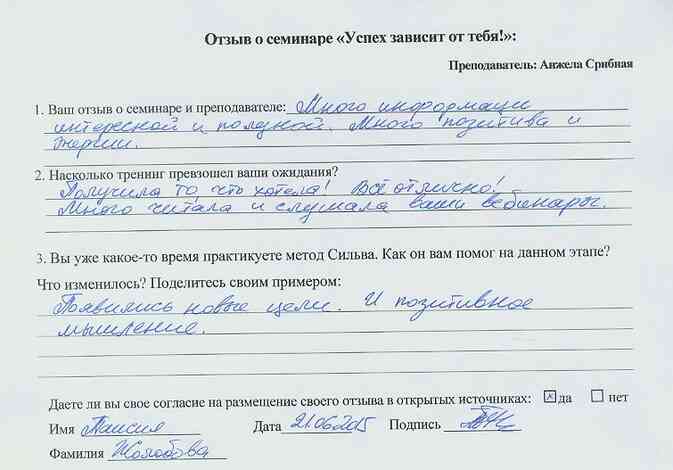 Отзыв о семинаре «Успех зависит от тебя!»:
Преподаватель: Анжела Срибная
1. Ваш отзыв о семинаре и преподавателе: Много информаци
интересной и полезной. Много позитива и
энергии.
2. Насколько тренинг превзошел ваши ожидания?
Получила то, что хотела! Всё отлично!
Много читала и слушала ваши вебинары.
3. Вы уже какое-то время практикуете метод Сильва. Как он вам помог на данном этапе?
Что изменилось? Поделитесь своим примером:
Появились новые цели. И позитивное
мышление.
Даете ли вы свое согласие на размещение своего отзыва в открытых источниках: да нет
Имя Таисия Дата 21.06.2015 Подпись
Фамилия Жолобова